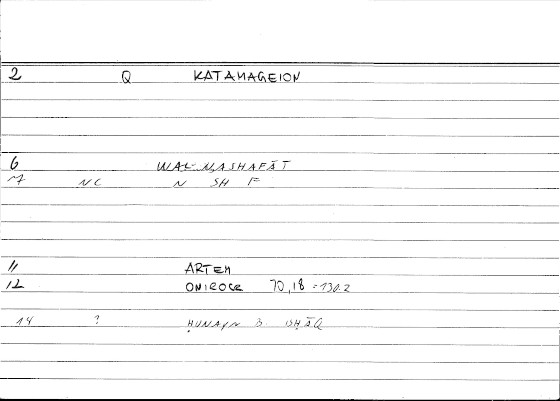 2 Q KATAMAGEION
6 WAL-MASHAFĀT
7 NC N SH F
11 ARTEM
12 ONIROCR 70,18 = 130.2
14 ? ḤUNAYN B. ISḤĀQ